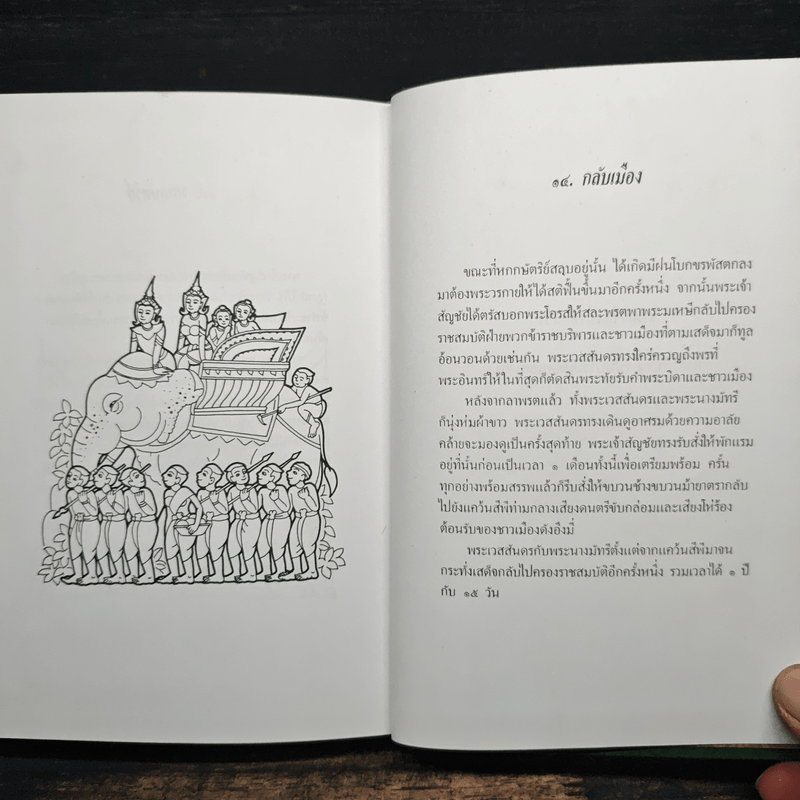 ๑๔. กลับเมือง
ขณะที่หกกษัตริย์สลบอยู่นั้น ได้เกิดมีฝนโบกขรพัสตกลง
มาต้องพระวรกายให้ได้สติฟื้นขึ้นมาอีกครั้งหนึ่ง จากนั้นพระเจ้า
สัญชัยได้ตรัสบอกพระโอรสให้สละพรตพาพระมเหษีกลับไปครอง
ราชสมบัติฝ่ายพวกข้าราชบริพารและชาวเมืองที่ตามเสด็จมาก็ทูล
อ้อนวอนด้วยเช่นกัน พระเวสสันดรทรงใคร่ครวญถึงพรที่
พระอินทร์ให้ในที่สุดก็ตัดสินพระทัยรับคำพระบิดาและชาวเมือง
หลังจากลาพรตแล้ว ทั้งพระเวสสันดรและพระนางมัทรี
ก็นุ่งห่มผ้าขาว พระเวสสันดรทรงเดินดูอาศรมด้วยความอาลัย
คล้ายจะมองดูเป็นครั้งสุดท้าย พระเจ้าสัญชัยทรงรับสั่งให้พักแรม
อยู่ที่นั่นก่อนเป็นเวลา ๑ เดือนทั้งนี้เพื่อเตรียมพร้อม ครั้น
ทุกอย่างพร้อมสรรพแล้วก็รีบสั่งให้ขบวนช้างขบวนม้ายาตรากลับ
ไปยังแคว้นสีพีท่ามกลางเสียงดนตรีขับกล่อมและเสียงโห่ร้อง
ต้อนรับของชาวเมืองดังอึงมี่
พระเวสสันดรกับพระนางมัทรีตั้งแต่จากแคว้นสีพีมาจน
กระทั่งเสด็จกลับไปครองราชสมบัติอีกครั้งหนึ่ง รวมเวลาได้ ๑ ปี
กับ ๑๕ วัน